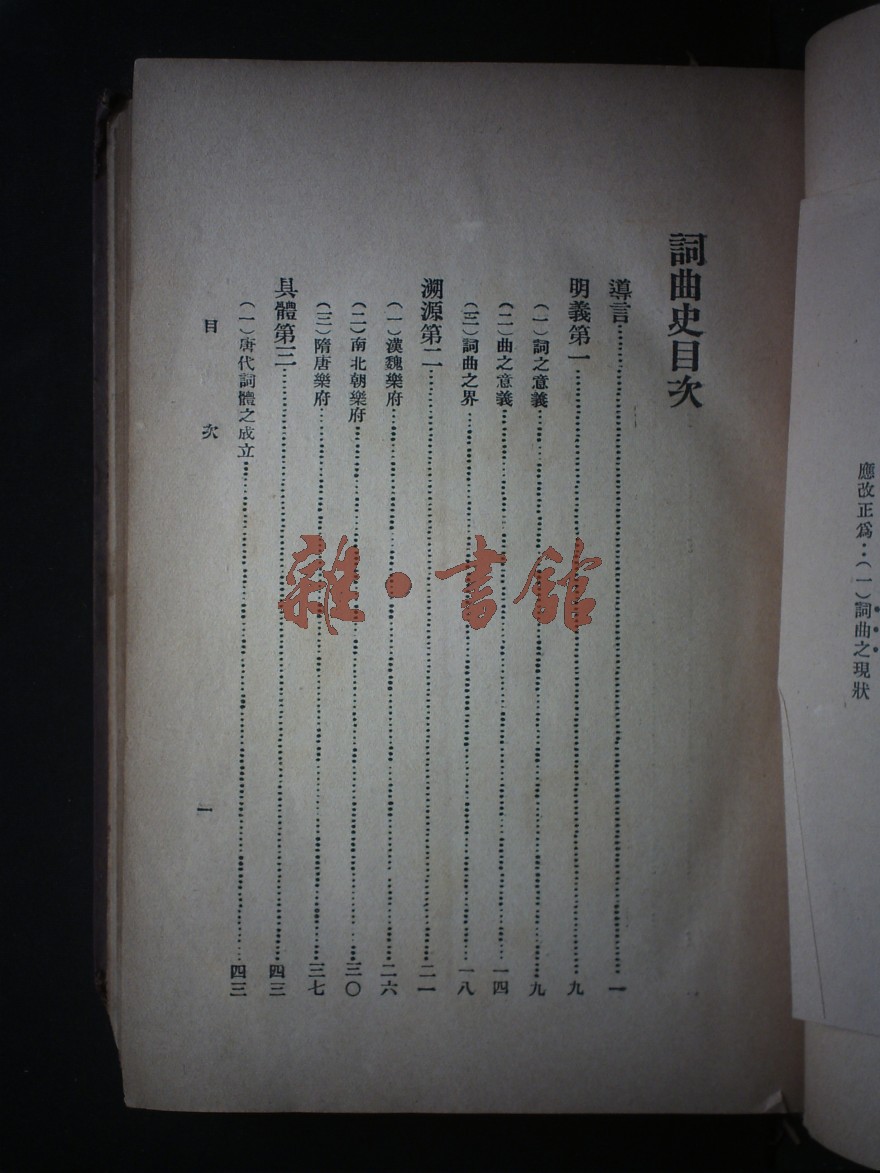 應改正為：(一)詞曲之現狀
詞曲史目次
導言……一
明義第一……九
(一)詞之意義……九
(二)曲之意義……一四
(三)詞曲之界……一八
溯源第二……二一
(一)漢魏樂府……二六
(二)南北朝樂府……三〇
(三)隋唐樂府……三七
具體第三……四三
(一)唐代詞體之成立……四三
目次
一
雜·書館